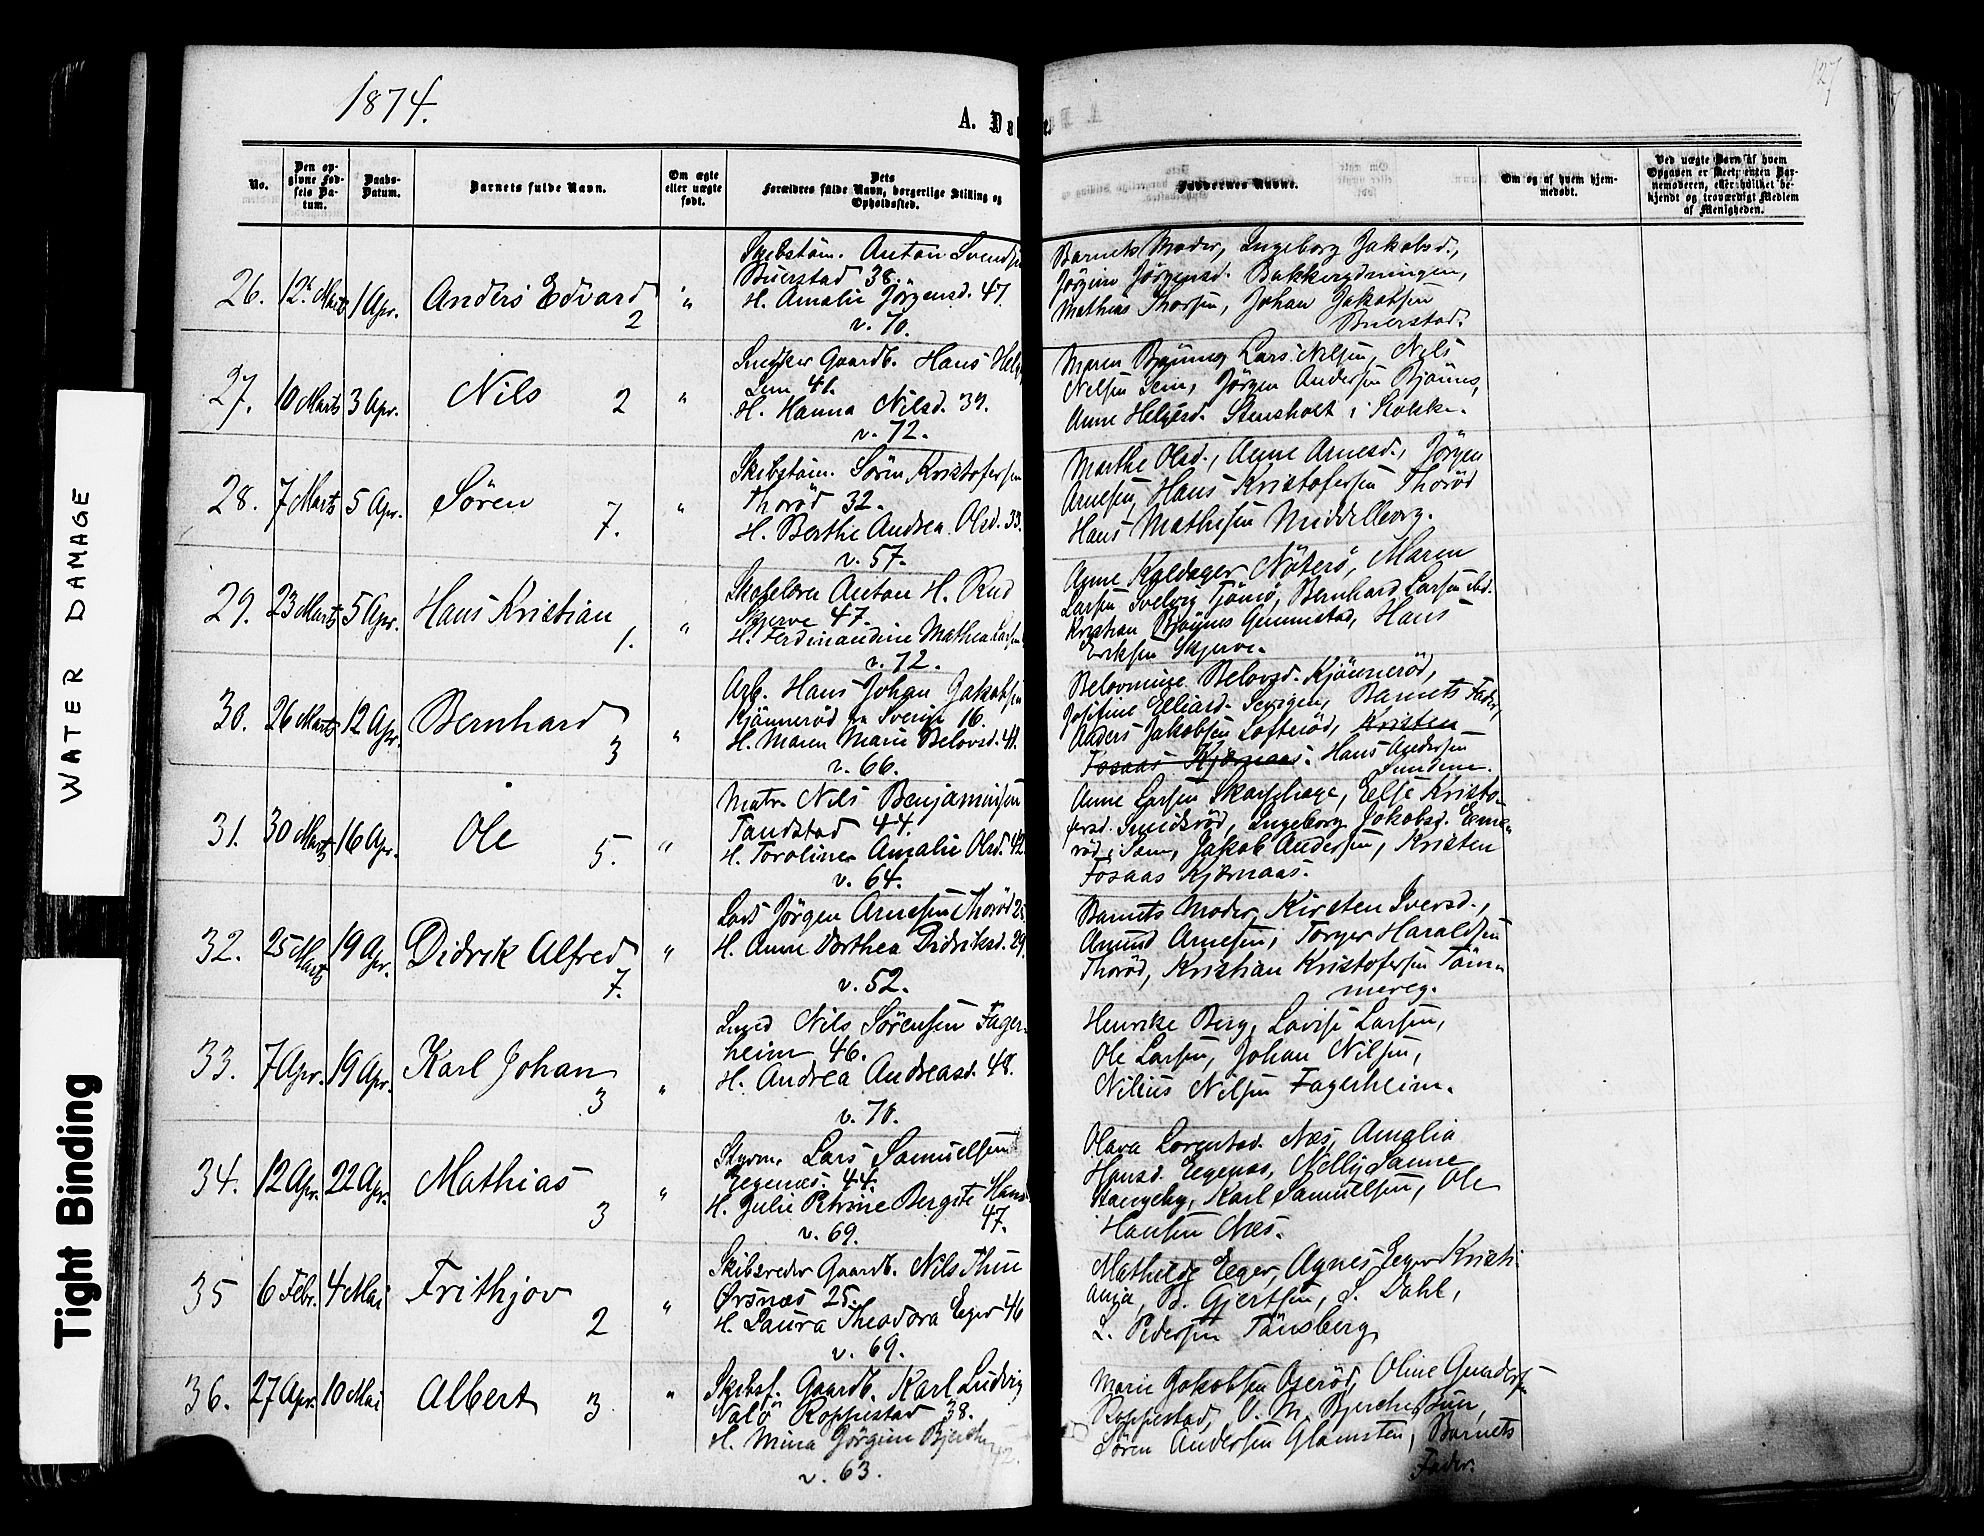 1874.
127
A. Dø
WATER DAMAGE
Tight Binding
No.
Den op-
givne Fød-
sels Da-
tum.
Daabs-
Datum.
Barnets fulde Navn.
Om ægte
eller uægte
født.
Dets
Forældres fulde Navn, borgerlige Stilling og
Opholdssted.
Faddernes Navne.
Om og af hvem hjem-
medøbt.
Ved uægte Barn af hvem
Opgaven er skeet; enten Bar-
nemoderen, eller hvilket be-
kjendt og troværdigt Medlem
af Menigheden.
26. 12 Marts 1 Apr. Anders Edvard 2 "
Skibstøm. Anton Svendsen
Buerstad 38.
H. Amalie Jörgensd. 47.
v. 70.
Barnets Moder, Ingeborg Jakobsd.,
Jörgine Jörgensd. Bakkerydningen,
Mathias Thorsen, Johan Jakobsen
Buerstad.
27. 10 Marts 3 Apr. Nils 2 "
Snedker Gaardb. Hans Helg
Sem 41.
H. Hanna Nilsd. 39.
v. 72.
Maren Bjönnes, Lars Nilsen, Nils
Nilsen Sem, Jörgen Andersen Bjönnes,
Anne Helgesd. Stensholt i Stokke.
28. 7 Marts 5 Apr. Sören 7. "
Skibstøm. Sören Kristofersen
Thoröd 32.
H. Berthe Andrea Olsd. 33.
v. 57.
Marthe Olsd., Anne Arnesd., Jörgen
Arnesen, Hans Kristofersen Thoröd
Hans Mathisen Middelborg.
29. 23 Marts 5 Apr. Hans Kristian 1. "
Anton H. Rud
Skjerve 47.
H. Ferdinandine Mathea Larsen
v. 72.
Anne Koldager Nöterö, Maren
Larsen Svelvig Tjömö, Bernhard Larsen ibd.
Kristian Bjönnes Gunnestad, Hans
Eriksen Skjerve.
30. 26 Marts 12 Apr. Bernhard 3 "
Arb. Hans Johan Jakobsen
Kjönneröd fra Sverige 16.
H. Maren Marie Belovsd. 41.
v. 66.
Belovmine Belovsd. Kjönneröd,
Josefine Barnets Fader,
Anders Jakobsen Lofteröd, Kristen
Fosaas Kjærnaas. Hans Andersen
Sundene.
31. 30 Marts 16 Apr. Ole 5. "
Matr. Nils Benjaminsen
Tandstad 44.
H. Toroline Amalie Olsd. 42.
v. 64.
Anne Larsen Skarphage, Else Kristo-
fersd. Smidsröd, Ingeborg Jakobsd.
röd i Sem, Jakob Andersen, Kristen
Fosaas Kjærnaas.
32. 25 Marts 19 Apr. Didrik Alfred 7. "
Lods Jörgen Arnesen Thoröd 25.
H. Anne Dorthea Didriksd. 29.
v. 52.
Barnets Moder, Kirsten Iversd.,
Amund Arnesen, Torger Haraldsen
Thoröd, Kristian Kristofersen Töm-
mereg.
33. 7 Apr. 19 Apr. Karl Johan 3 "
Smed Nils Sörensen Fager-
heim 46.
H. Andrea Andreasd. 48.
v. 70.
Henrike Berg, Lovise Larsen,
Ole Larsen, Johan Nilsen,
Nilius Nilsen Fagerheim.
34. 12 Apr. 22 Apr. Mathias 3 "
Styrm. Lars Samuelsen
Eegenæs. 44.
H. Julie Petrine Bergite Hans
47.
v. 69.
Olava Lorentsd. Næs, Amalia
Hansd. Eegenæs, Nelly Sanne
Stangeby, Karl Samuelsen, Ole
Hansen Næs.
35 6 Febr. 4 Mai Frithjov 2 "
Skibsreder Gaardb. Nils Thue
Örsnæs 25.
H. Laura Theodora Eger 46
v. 69.
Mathilde Eeger, Agnes Eeger Kristi-
ania, B. Gjertsen, S. Dahl,
L. Pedersen Tönsberg.
36. 27 Apr. 10 Mai Albert 3 "
Skibsf. Gaardb. Karl Ludvig
Valö Roppestad 38.
H. Mina Jörgine Bjerch
v. 63.
Marie Jakobsen Oseröd, Oline Gundersen
Roppestad, O. M. Bjerche Bun,
Sören Andersen Glomsten, Barnets
Fader.